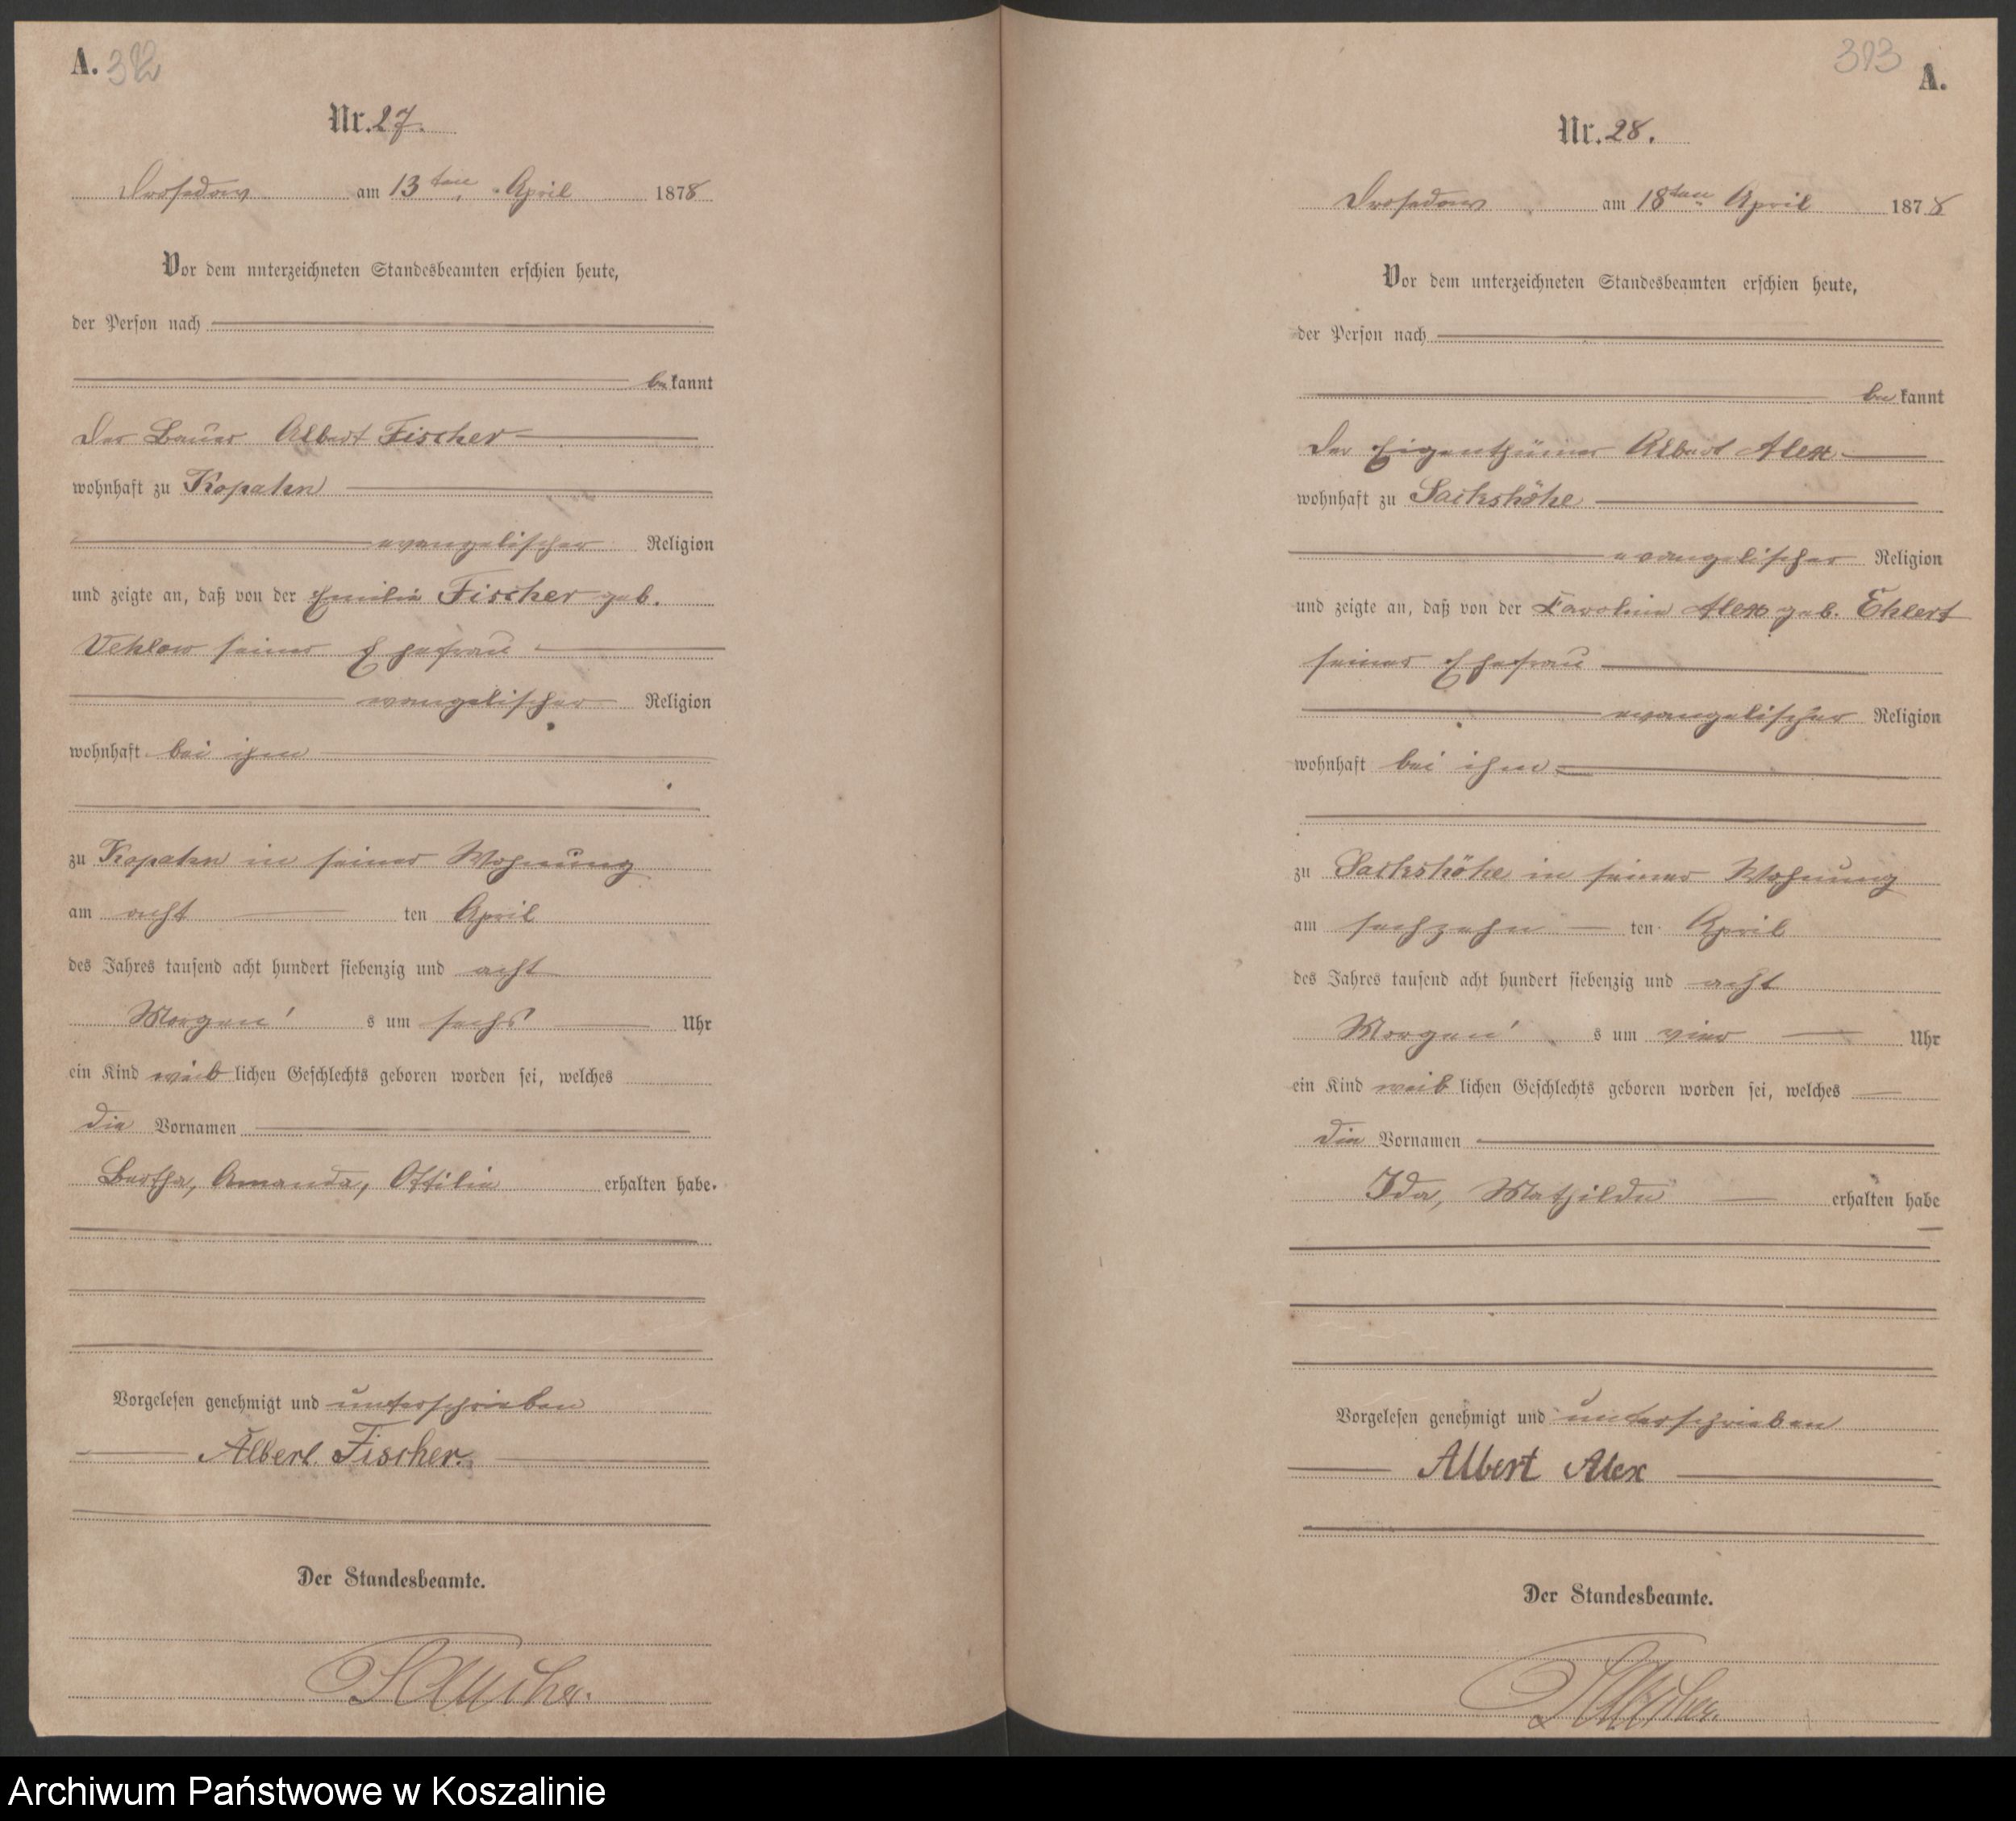 A. 312
Nr. 27.
Drosedow am 13ten April 1878
Vor dem unterzeichneten Standesbeamten erschien heute,
der Person nach
be kannt
Der Bauer Albert Fischer
wohnhaft zu Kopahn
evangelischer Religion
und zeigte an, daß von der Emilie Fischer geb.
Vehlow seiner Ehefrau
evangelischer Religion
wohnhaft bei ihm
zu Kopahn in seiner Wohnung
am acht ten April
des Jahres tausend acht hundert siebenzig und acht
Morgen' s um sechs Uhr
ein Kind weib lichen Geschlechts geboren worden sei, welches
die Vornamen
Bertha, Amanda, Ottilie erhalten habe.
Vorgelesen genehmigt und unterschrieben
Albert Fischer.
Der Standesbeamte.
313 A.
Nr. 28.
Drosedow am 18ten April 1878
Vor dem unterzeichneten Standesbeamten erschien heute,
der Person nach
be kannt
Der Eigenthümer Albert Alex
wohnhaft zu Sackshöhe
evangelischer Religion
und zeigte an, daß von der Karoline Alex geb. Ehlert
seiner Ehefrau
evangelischer Religion
wohnhaft bei ihm
zu Sackshöhe in seiner Wohnung
am sechzehn ten April
des Jahres tausend acht hundert siebenzig und acht
Morgen' s um vier Uhr
ein Kind weib lichen Geschlechts geboren worden sei, welches
die Vornamen
Ida, Mathilde erhalten habe
Vorgelesen genehmigt und unterschrieben
Albert Alex
Der Standesbeamte.
Archiwum Państwowe w Koszalinie